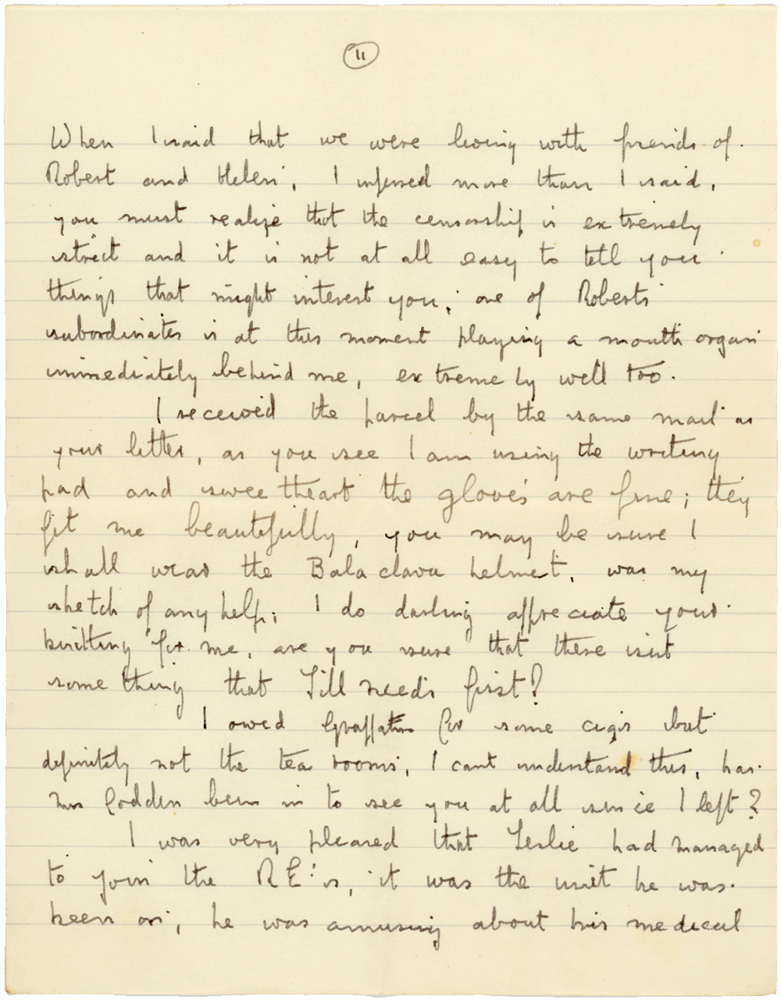 11
When I said that we were living with friends of
Robert and Helen, I infered more than I said,
you must realize that the censorship is extremely
strict and it is not at all easy to tell you
things that might interest you; one of Roberts
subordinates is at this moment playing a mouth organ
immediately behind me, extremely well too.
I received the parcel by the same mail as
your letter, as you see I am using the writing
pad and sweetheart the gloves are fine; they
fit me beautifully, you may be sure I
shall wear the Balaclava helmet, was my
sketch of any help; I do darling appreciate your
knitting for me, are you sure that there isnt
something that Jill needs first?
I owed for some cigs but
definitely not the tea rooms, I cant understand this, has
Mrs Codden been in to see you at all since I left?
I was very pleased that Leslie had managed
to join the R.E.'s, it was the unit he was
keen on, he was amusing about his medical